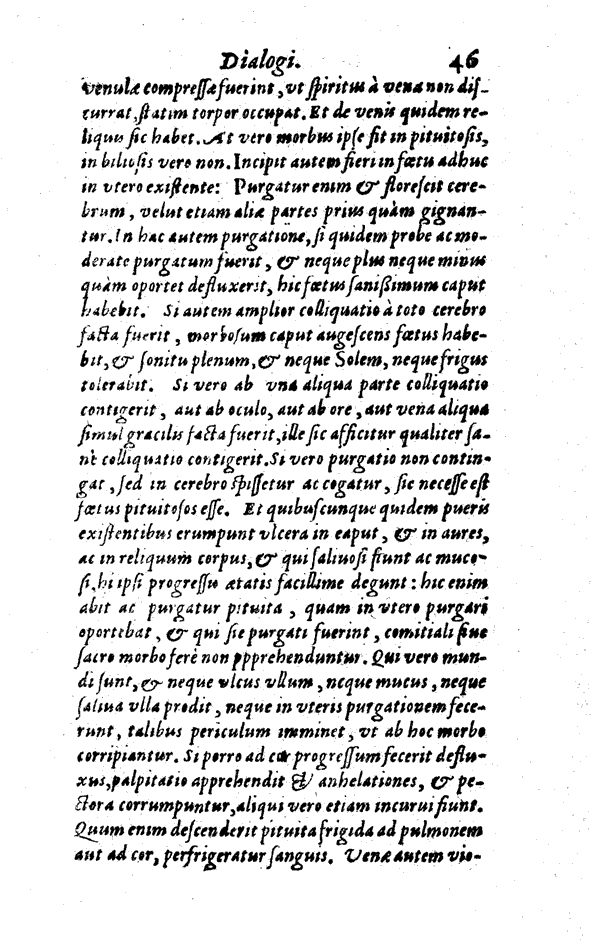 Dialogi. 46
venulæ compreſſa fuerint, vt ſpiritus à vena non diſ-
currat, ſtatim torpor occupat. Et de venis quidem re-
liquus ſic habet. At vero morbus ipſe fit in pituitoſis,
in bilioſis vero non. Incipit autem fieri in fœtu adhuc
in vtero exiſtente: Purgatur enim & floreſcit cere-
brum, velut etiam aliæ partes prius quàm gignan-
tur. In hac autem purgatione, ſi quidem probe ac mo-
derate purgatum fuerit, & neque plus neque minus
quàm oportet defluxerit, hic fœtus ſanißimum caput
habebit. Si autem amplior colliquatio à toto cerebro
facta fuerit, morboſum caput augeſcens fœtus habe-
bit, & ſonitu plenum, & neque Solem, neque frigus
tolerabit. Si vero ab vna aliqua parte colliquatio
contigerit, aut ab oculo, aut ab ore, aut vena aliqua
ſimul gracilis facta fuerit, ille ſic afficitur qualiter ſa-
nè colliquatio contigerit. Si vero purgatio non contin-
gat, ſed in cerebro ſpiſſetur ac cogatur, ſic neceſſe eſt
fœtus pituitoſos eſſe. Et quibuſcunque quidem pueris
exiſtentibus erumpunt vlcera in caput, & in aures,
ac in reliquum corpus, & qui ſaliuoſi fiunt ac muco-
ſi, hi ipſi progreſſu ætatis facillime degunt: hic enim
abit ac purgatur pituita, quam in vtero purgari
oportebat, & qui ſic purgati fuerint, comitiali ſiue
ſacro morbo ferè non ppprehenduntur. Qui vero mun-
di ſunt, & neque vlcus vllum, neque mucus, neque
ſaliua vlla prodit, neque in vteris purgationem fece-
runt, talibus periculum imminet, vt ab hoc morbo
corripiantur. Si porro ad cor progreſſum fecerit deflu-
xus, palpitatio apprehendit & anhelationes, & pe-
ctora corrumpuntur, aliqui vero etiam incurui fiunt.
Quum enim deſcenderit pituita frigida ad pulmonem
aut ad cor, perfrigeratur ſanguis. Venæ autem vio-